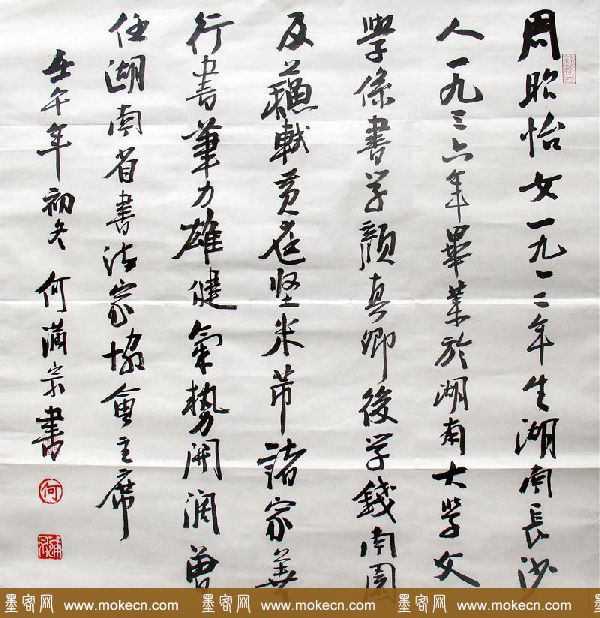 周昭怡女一九一二年生湖南長沙
人一九三六年畢業於湖南大學文
學係書学顏真卿後学錢南園
及蘇軾黄庭坚米芾諸家善
行書筆力雄健氣勢開濶曾
任湖南省書法家協會主席
壬午年初冬何满宗書
墨客网 www.mokecn.com 墨客网 www.mokecn.com 墨客网 www.mokecn.com